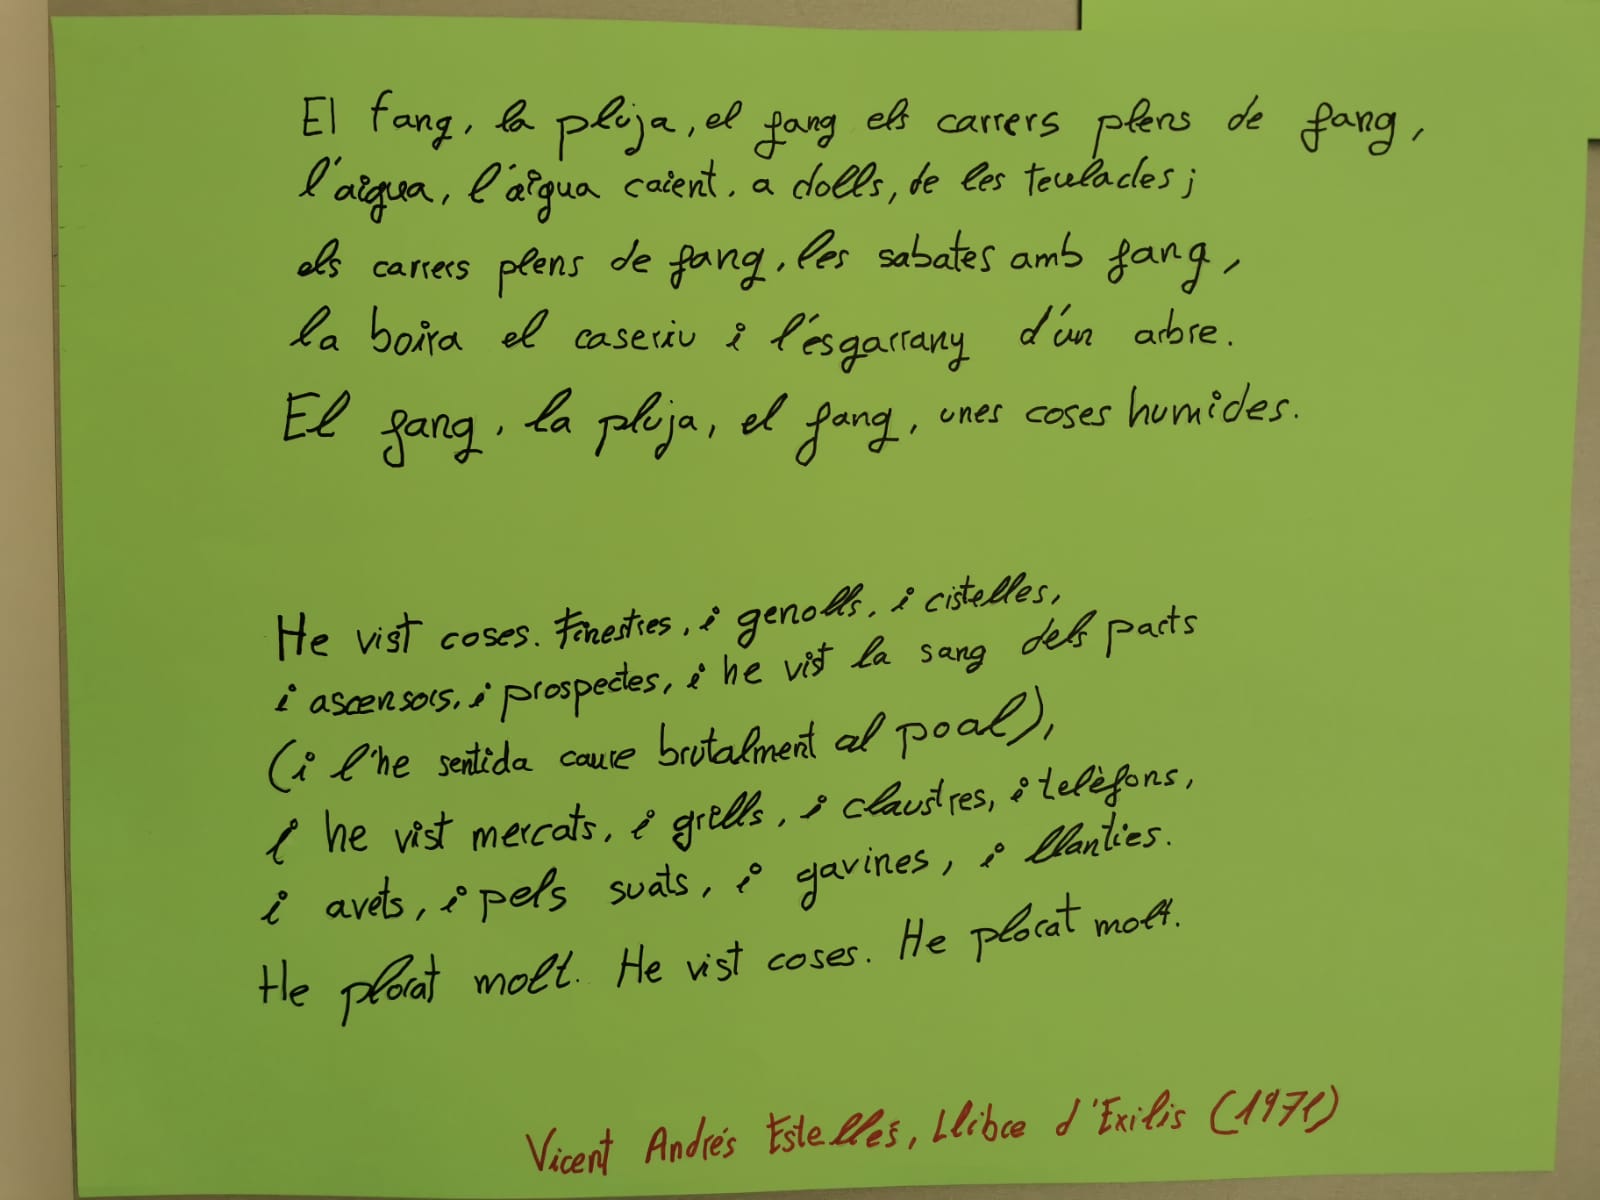 El fang, la pluja, el fang els carrers plens de fang,
l'aigua, l'aigua caient, a dolls, de les teulades;
els carrers plens de fang, les sabates amb fang,
la boira el caseriu i l'esgarrany d'un arbre.
El fang, la pluja, el fang, unes coses humides.
He vist coses. Finestres, i genolls, i cistelles,
i ascensors, i prospectes, i he vist la sang dels parts
(i l'he sentida caure brutalment al poal),
i he vist mercats, i grills, i claustres, i telèfons,
i avets, i pels suats, i gavines, i llanties.
He plorat molt. He vist coses. He plorat molt.
Vicent Andrés Estellés, Llibre d'Exilis (1971)